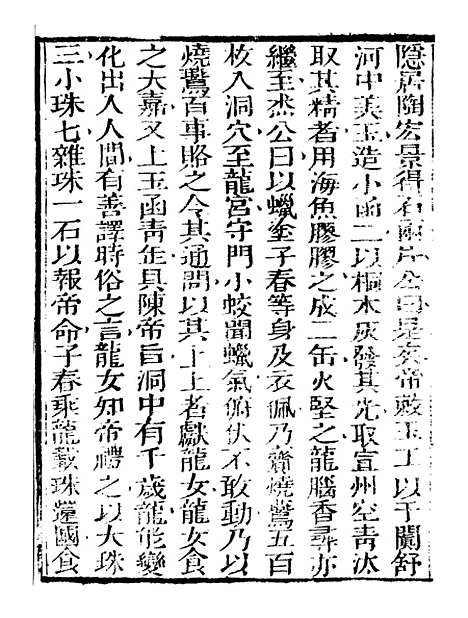 隐居陶宏景得石兩片公曰是矣帝敕玉工以于闐舒
河中美玉造小函二以桐木灰發其光取宣州空青汰
取其精者用海魚膠膠之成二缶火堅之龍腦香尋亦
繼至杰公曰以蠟塗子春等身及衣佩乃齎燒鷰五百
枚入洞穴至龍宮守門小蛟聞蠟氣俯伏不敢動乃以
燒鷰百事賂之令其通問以其上上者獻龍女龍女食
之大嘉又上玉函青缶具陳帝旨洞中有千歲龍能變
化出入人間有善譯時俗之言龍女知帝禮之以大珠
三小珠七雜珠一石以報帝命子春乘龍載珠還國食